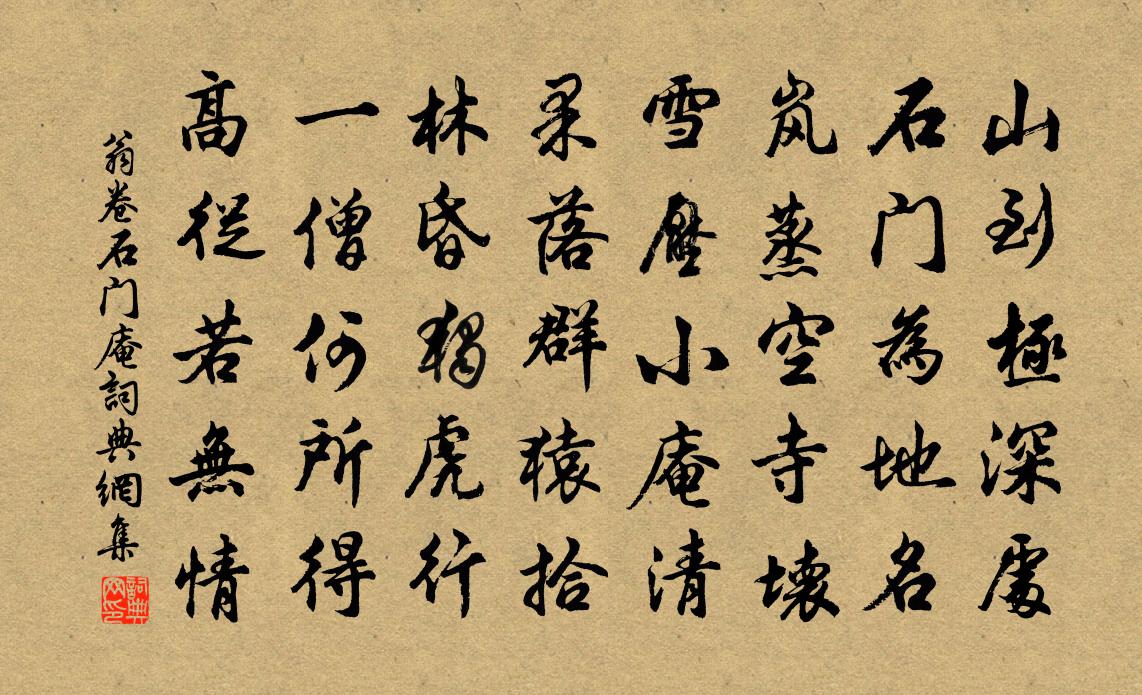 山到極深處
石门為地名
岚蒸空寺壞
雪壓小庵清
果落群猿拾
林昏獨虎行
一僧何所得
髙從若無情
翁卷石门庵詞典網集
詞典网印